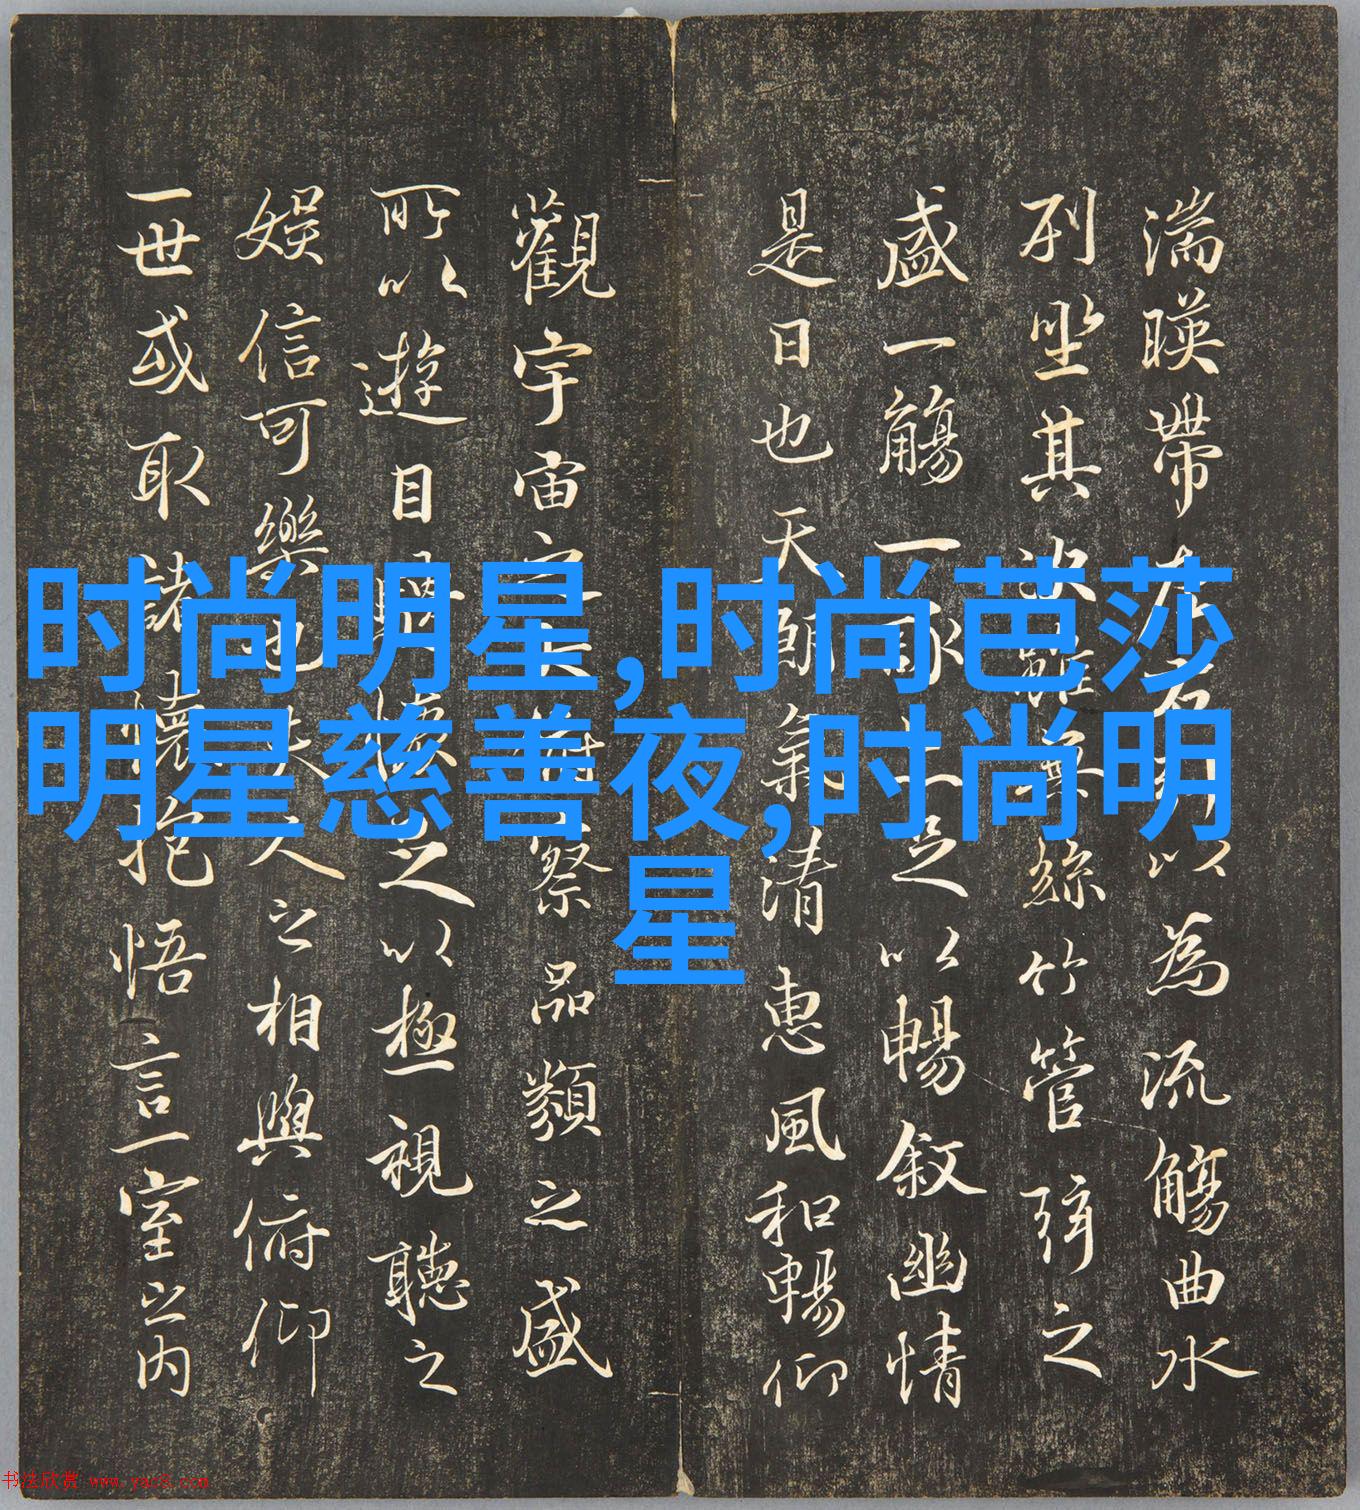 湍暎帶左右引以為流觴曲水
列坐其次雖無絲竹管弦之
盛一觴一詠亦足以暢敘幽情
是日也天朗氣清惠風和暢仰
觀宇宙之大俯察品類之盛
所以遊目騁懷足以極視聽之
娛信可樂也夫人之相與俯仰
一世或取諸懷抱悟言一室之內
时尚明星,时尚芭莎
明星慈善夜,时尚明
星
书法欣赏 www.yac8.com